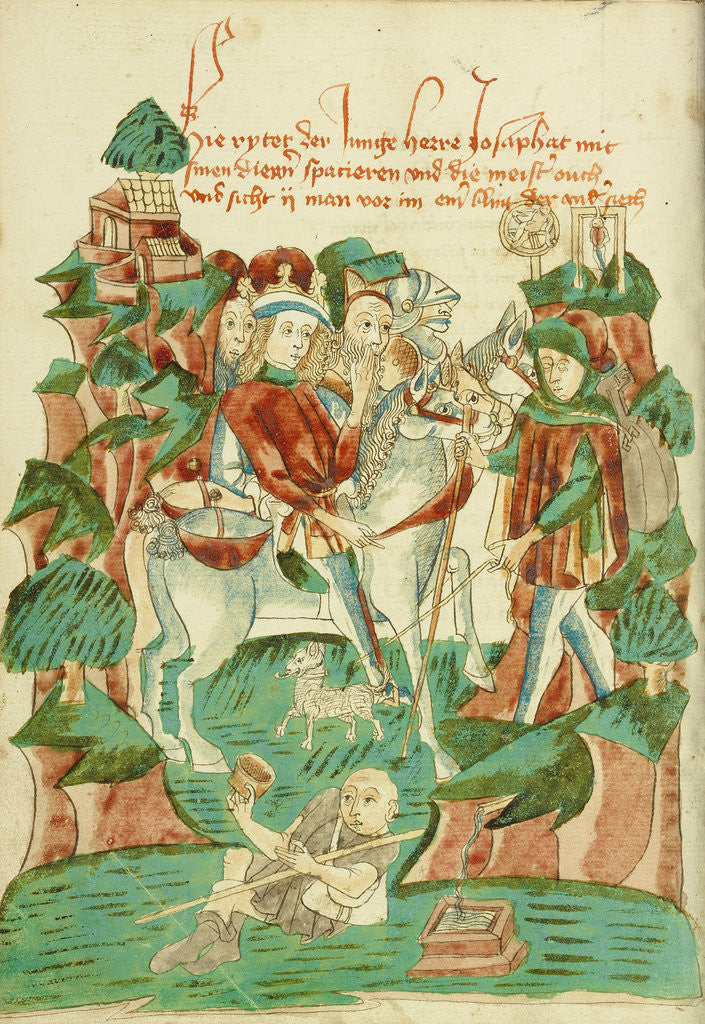 Hie rytet der Junge herre Josaphat mit
sinen dienern spacieren und die meister ouch
und sicht ij man vor im einer blint der ander siech